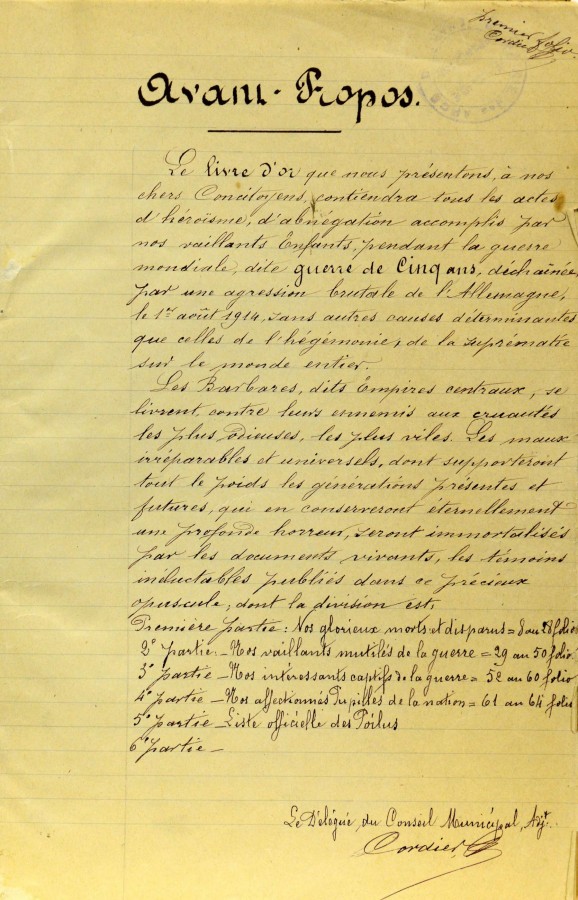 premier folio.
Cordier
Avant-Propos.
Le livre d'or que nous présentons, à nos
chers Concitoyens, contiendra tous les actes
d'héroïsme, d'abnégation accomplis par
nos vaillants Enfants, pendant la guerre
mondiale, dite guerre de Cinq ans, déchaînée,
par une agression brutale de l'Allemagne,
le 1er août 1914, sans autres causes déterminantes
que celles de l'hégémonie, de la suprématie
sur le monde entier.
Les Barbares, dits Empires centraux, se
livrent, contre leurs ennemis aux cruautés
les plus odieuses, les plus viles. Les maux
irréparables et universels, dont supporteront
tout le poids les générations présentes et
futures, qui en conserveront éternellement
une profonde horreur, seront immortalisés
par les documents vivants, les témoins
inductables publiés dans ce précieux
opuscule, dont la division est.
Première partie: Nos glorieux morts et disparus = 8 au 28 folio
2e partie - Nos vaillants mutilés de la guerre = 29 au 50 folio
3e partie - Nos intéressants captifs de la guerre = 52 au 60 folio
4e partie - Nos affectionnés Pupilles de la nation = 61 au 64 folio
5e partie - Liste officielle des Poilus
6e partie -
Le Délégué, du Conseil Municipal, Adjt
Cordier